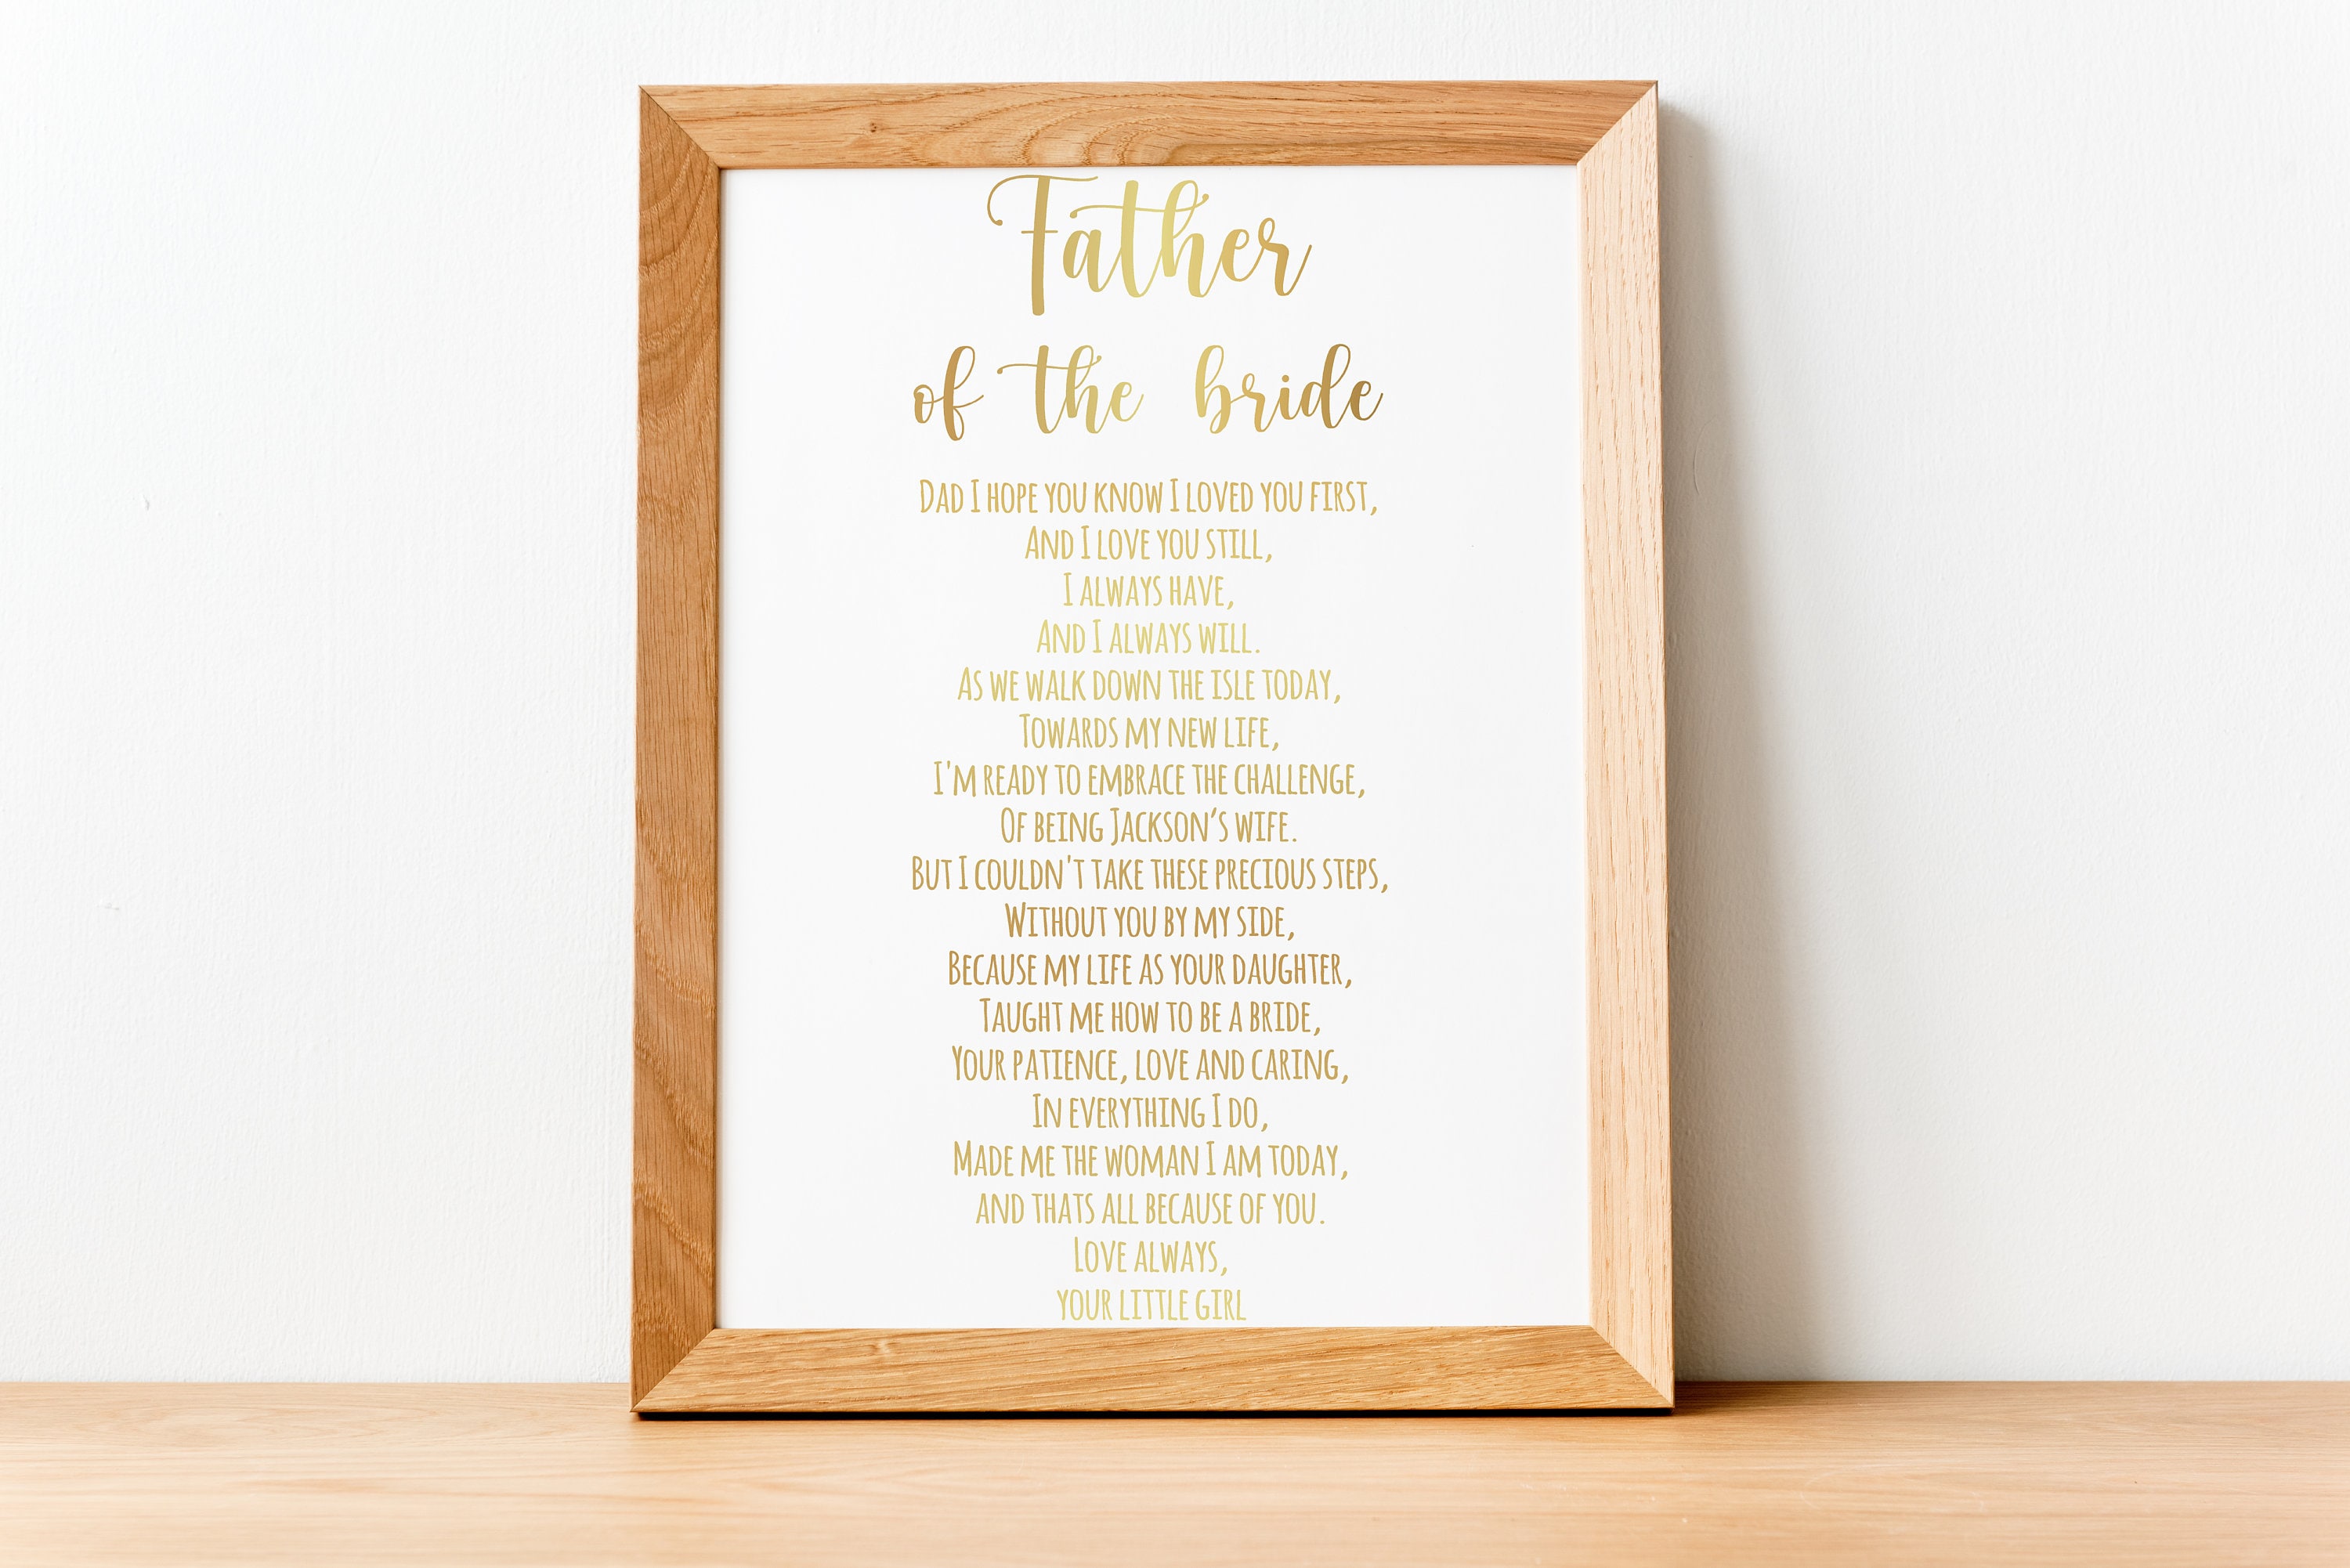 Father
of the bride
Dad I hope you know I loved you first,
And I love you still,
I always have,
And I always will.
As we walk down the isle today,
Towards my new life,
I'm ready to embrace the challenge,
Of being Jackson’s wife.
But I couldn't take these precious steps,
Without you by my side,
Because my life as your daughter,
Taught me how to be a bride,
Your patience, love and caring,
In everything I do,
Made me the woman I am today,
and thats all because of you.
Love always,
your little girl